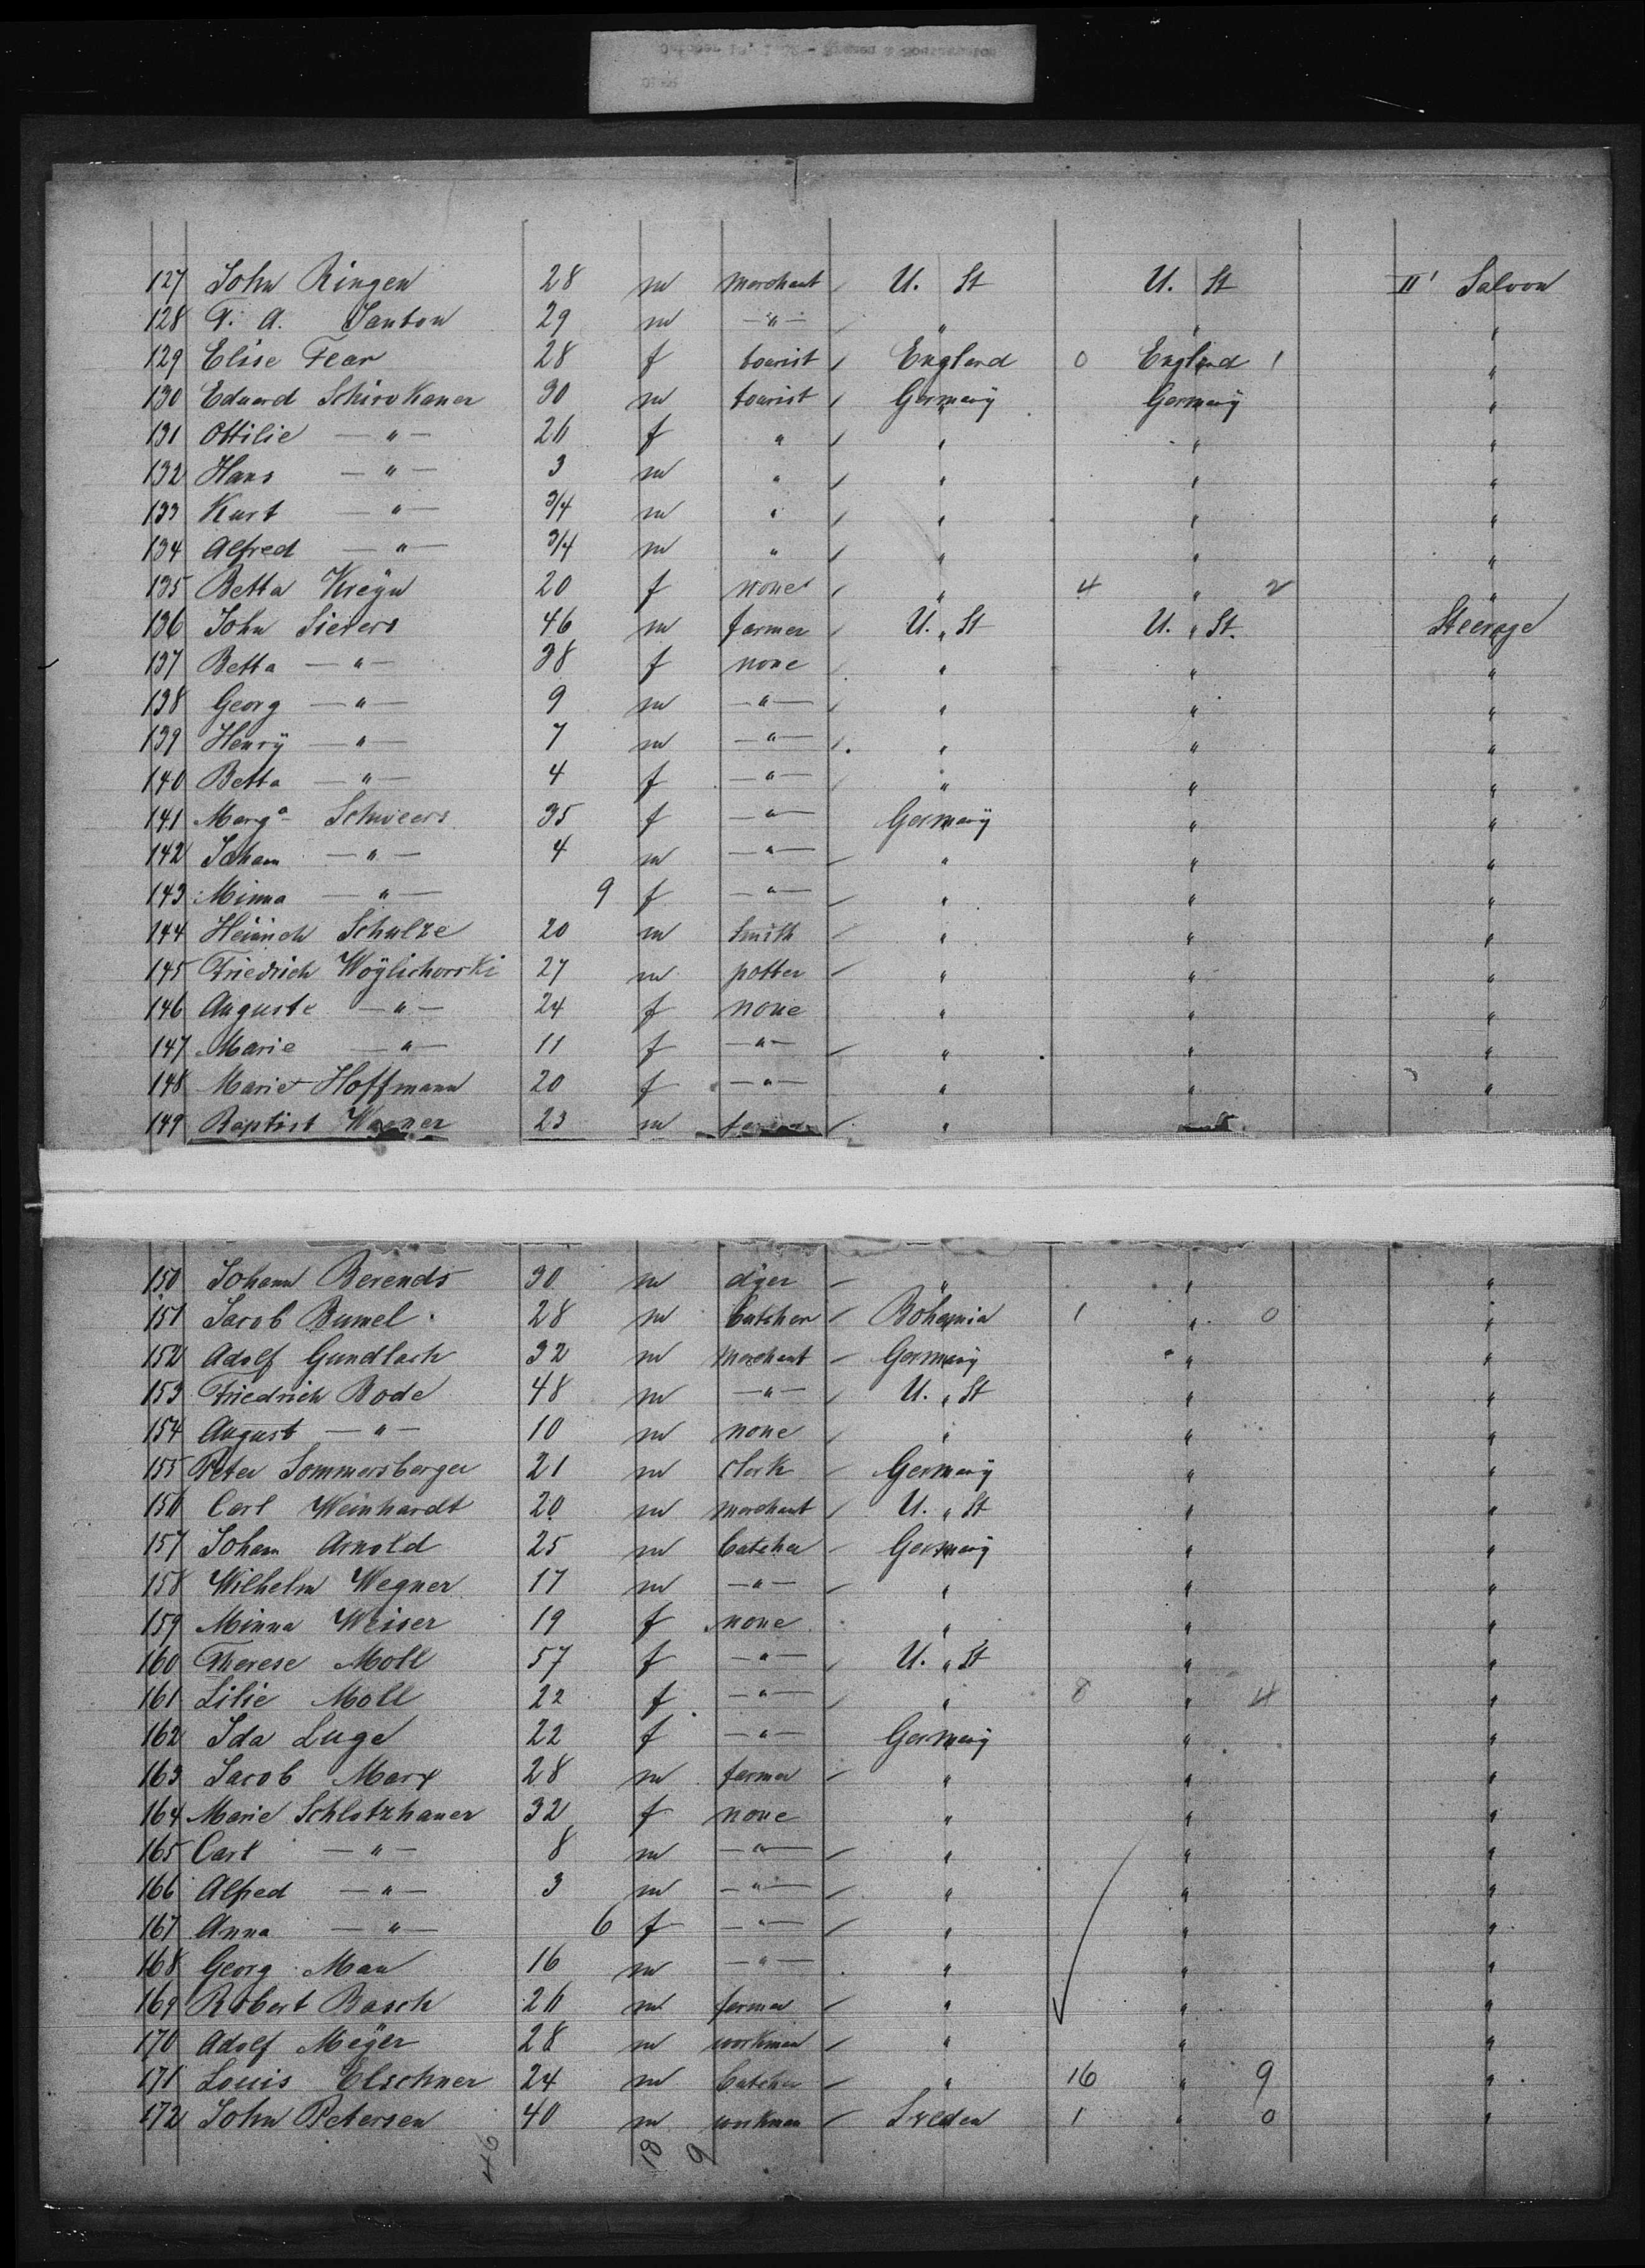 127 John Ringen 28 m merchant U. St U. St II' Saloon
128 F. A. Santon 29 m —"— " " "
129 Elise Fear 28 f tourist England 0 England 1 "
130 Eduard Schirokauer 30 m tourist Germany Germany "
131 Ottilie —"— 26 f " " " "
132 Hans —"— 3 m " " " "
133 Kurt —"— 3/4 m " " " "
134 Alfred —"— 3/4 m " " " "
135 Betta Kreyn 20 f none " 4 " 2 "
136 John Sievers 46 m farmer U. St U. St. Steerage
137 Betta —"— 38 f none " " "
138 Georg —"— 9 m —"— " " "
139 Henry —"— 7 m —"— " " "
140 Betta —"— 4 f —"— " " "
141 Marg.a Schweers 35 f —"— Germany " "
142 Johann —"— 4 m —"— " " "
143 Minna —"— 9 f —"— " " "
144 Heinrich Schulze 20 m smith " " "
145 Friedrich Woylichowski 27 m potter " " "
146 Auguste —"— 24 f none " " "
147 Marie —"— 11 f —"— " " "
148 Marie Hoffmann 20 f —"— " " "
149 Baptist Wagner 23 m "
150 Johann Berends 30 m dyer " " "
151 Jacob Bumel 28 m butcher Bohemia 1 " 0 "
152 Adolf Gundlach 32 m merchant Germany " "
153 Friedrich Bode 48 m —"— U. St " "
154 August —"— 10 m none " " "
155 Peter Sommersberger 21 m clerk Germany " "
156 Carl Weinhardt 20 m merchant U. St " "
157 Johann Arnold 25 m butcher Germany " "
158 Wilhelm Wegner 17 m —"— " " "
159 Minna Weiser 19 f none " " "
160 Therese Moll 57 f —"— U. St " "
161 Lilie Moll 22 f —"— " 8 " 4 "
162 Ida Luge 22 f —"— Germany " "
163 Jacob Marx 28 m farmer " " "
164 Marie Schlotzhauer 32 f none " " "
165 Carl —"— 8 m —"— " " "
166 Alfred —"— 3 m —"— " " "
167 Anna —"— 6 f —"— " " "
168 Georg Mau 16 m —"— " " "
169 Robert Basch 26 m farmer " " "
170 Adolf Meyer 28 m workman " " "
171 Louis Elschner 24 m butcher " 16 " 9 "
172 John Petersen 40 m workman Sweden 1 " 0 "
46 18 9